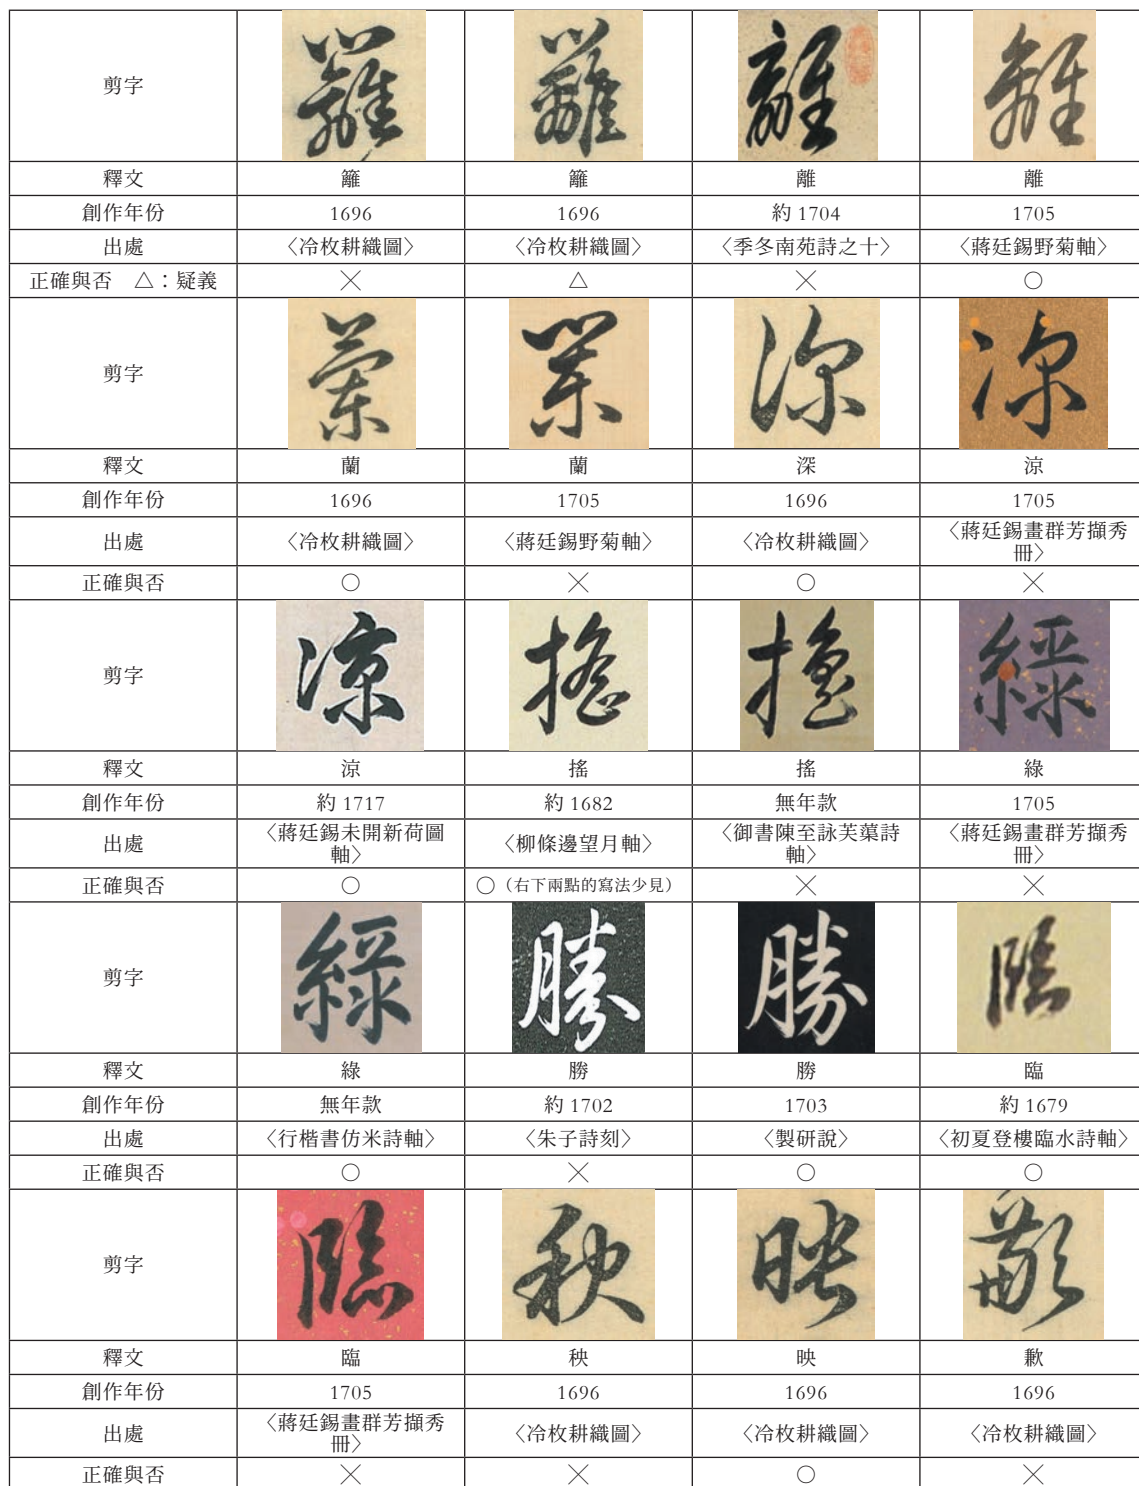 剪字
釋文 籬 籬 離 離
創作年份 1696 1696 約 1704 1705
出處 〈冷枚耕織圖〉 〈冷枚耕織圖〉 〈季冬南苑詩之十〉 〈蔣廷錫野菊軸〉
正確與否 △：疑義 ╳ △ ╳ ○
剪字
釋文 蘭 蘭 深 涼
創作年份 1696 1705 1696 1705
出處 〈冷枚耕織圖〉 〈蔣廷錫野菊軸〉 〈冷枚耕織圖〉 〈蔣廷錫畫群芳擷秀冊〉
正確與否 ○ ╳ ○ ╳
剪字
釋文 涼 搖 搖 綠
創作年份 約 1717 約 1682 無年款 1705
出處 〈蔣廷錫未開新荷圖軸〉 〈柳條邊望月軸〉 〈御書陳至詠芙蕖詩軸〉 〈蔣廷錫畫群芳擷秀冊〉
正確與否 ○ ○（右下兩點的寫法少見） ╳ ╳
剪字
釋文 綠 勝 勝 臨
創作年份 無年款 約 1702 1703 約 1679
出處 〈行楷書仿米詩軸〉 〈朱子詩刻〉 〈製研說〉 〈初夏登樓臨水詩軸〉
正確與否 ○ ╳ ○ ○
剪字
釋文 臨 秧 映 歉
創作年份 1705 1696 1696 1696
出處 〈蔣廷錫畫群芳擷秀冊〉 〈冷枚耕織圖〉 〈冷枚耕織圖〉 〈冷枚耕織圖〉
正確與否 ╳ ╳ ○ ╳